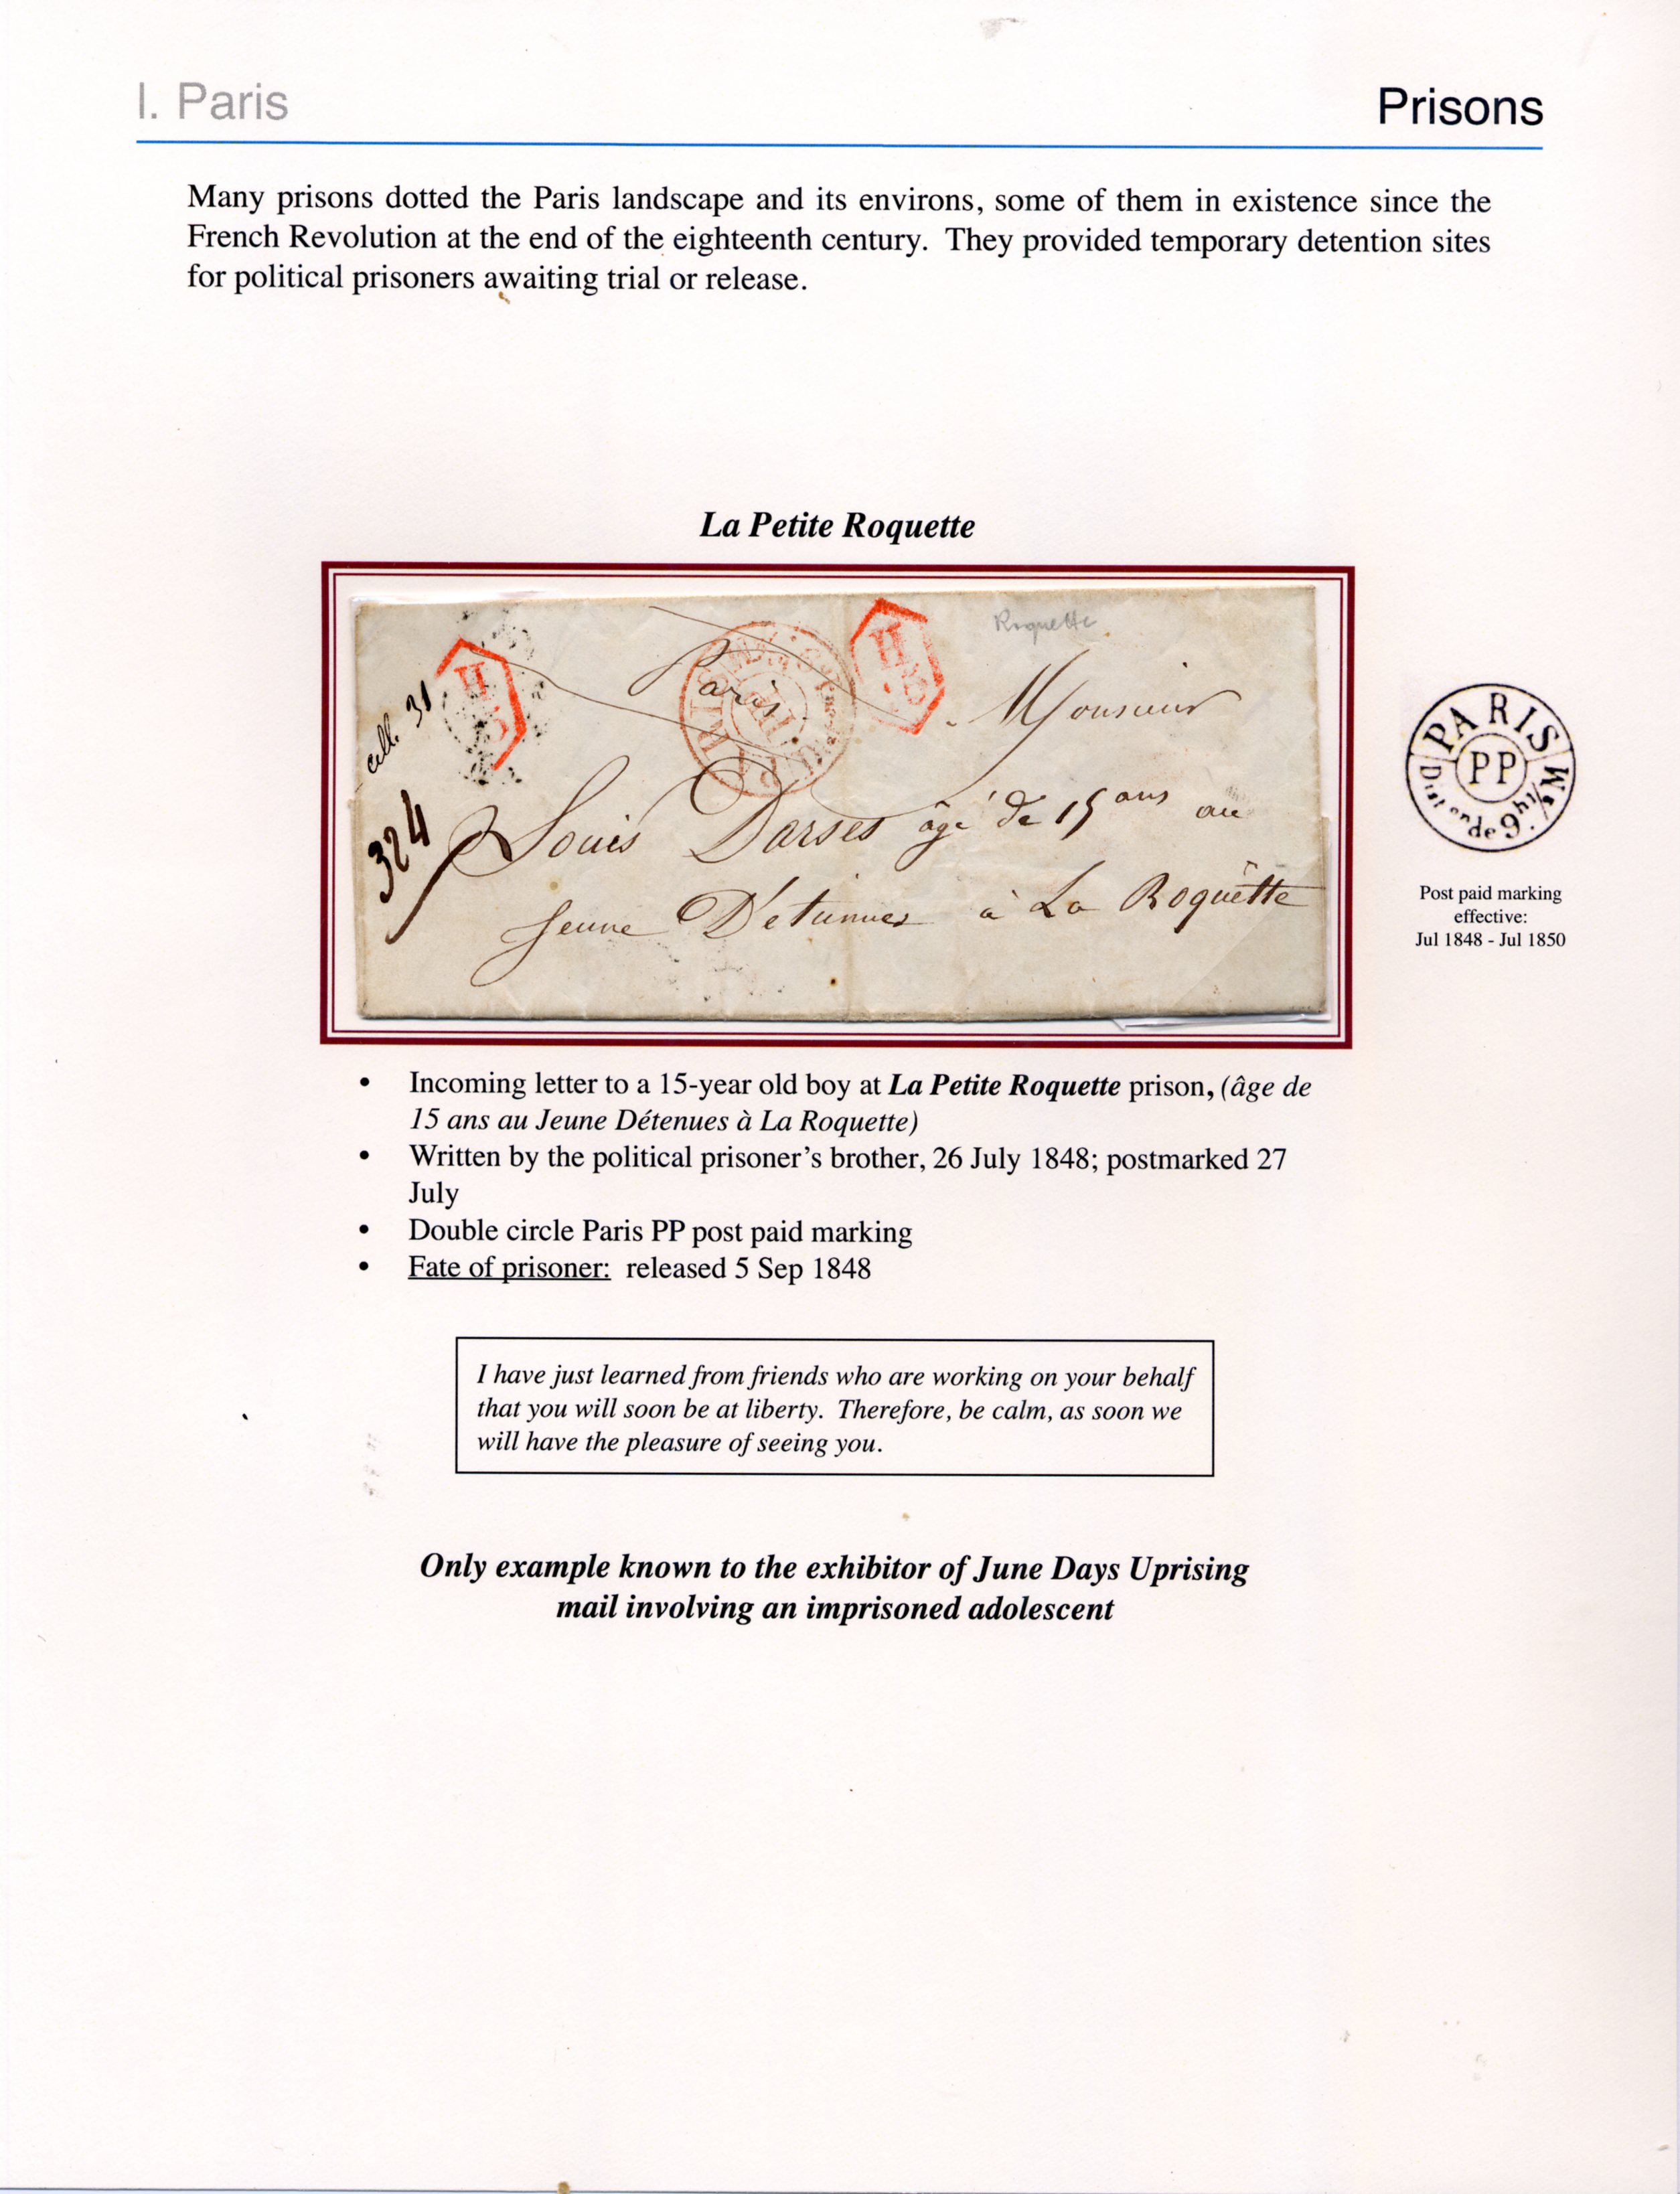 I. Paris
Prisons
Many prisons dotted the Paris landscape and its environs, some of them in existence since the
French Revolution at the end of the eighteenth century. They provided temporary detention sites
for political prisoners awaiting trial or release.
La Petite Roquette
Roquette
Paris
Monsieur
cell. 31
324
Louis Darses âgé de 15 ans au
Jeune Détenues à La Roquette
PARIS
PP
Post paid marking
effective:
Jul 1848 - Jul 1850
• Incoming letter to a 15-year old boy at La Petite Roquette prison, (âge de
15 ans au Jeune Détenues à La Roquette)
• Written by the political prisoner's brother, 26 July 1848; postmarked 27
July
• Double circle Paris PP post paid marking
• Fate of prisoner: released 5 Sep 1848
I have just learned from friends who are working on your behalf
that you will soon be at liberty. Therefore, be calm, as soon we
will have the pleasure of seeing you.
Only example known to the exhibitor of June Days Uprising
mail involving an imprisoned adolescent